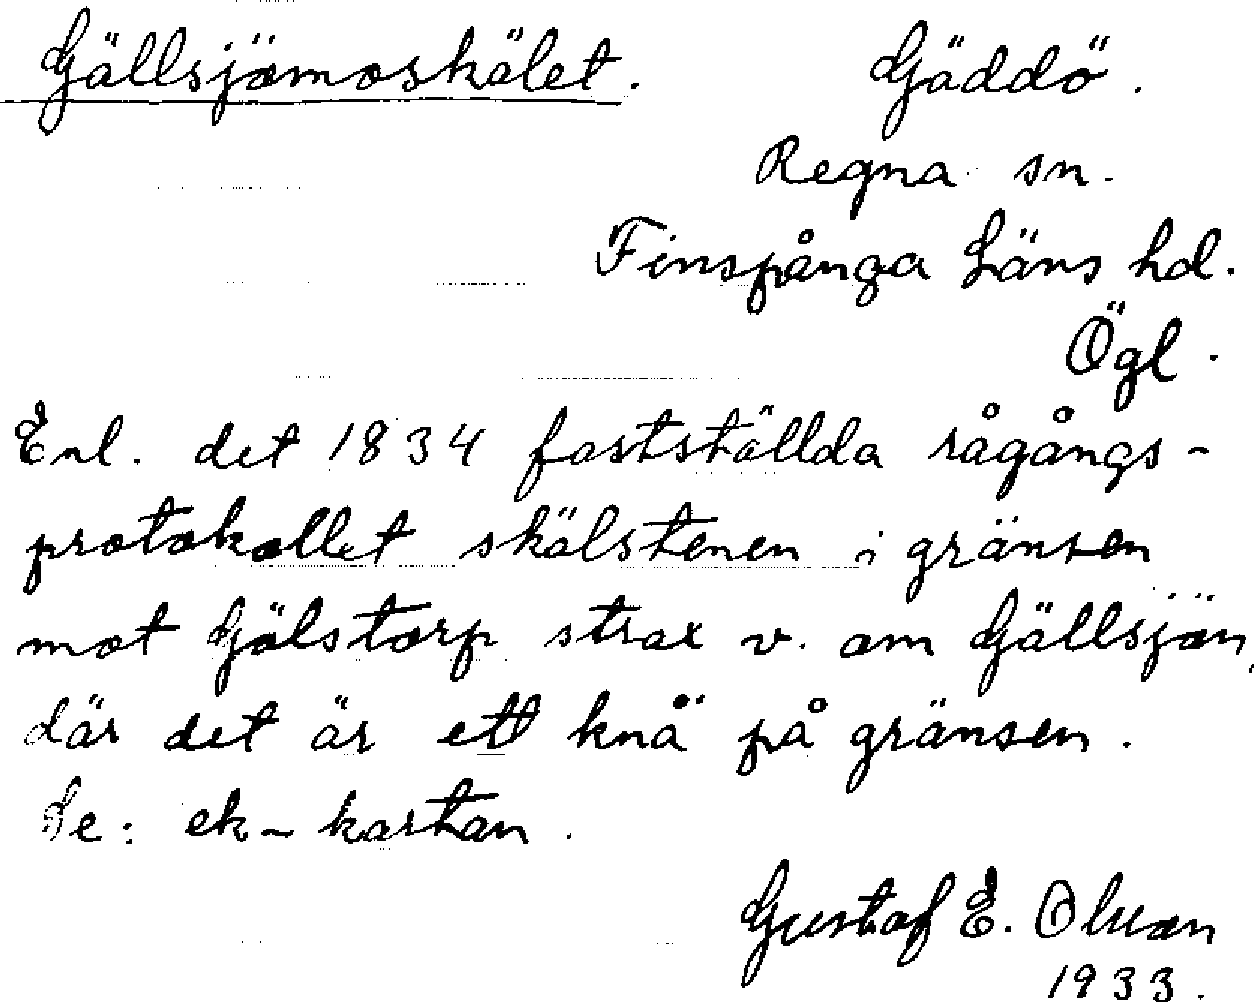 Gällsjömoskälet.
Gäddö.
Regna sn.
Finspånga Läns hd.
Ögl.
Enl. det 1834 fastställda rågångs-
protokollet skälstenen i gränsen
mot Gälstorp strax v. om Gällsjön,
där det är ett knä på gränsen.
Se: ek-kartan.
Gustaf E. Olsson
1933.